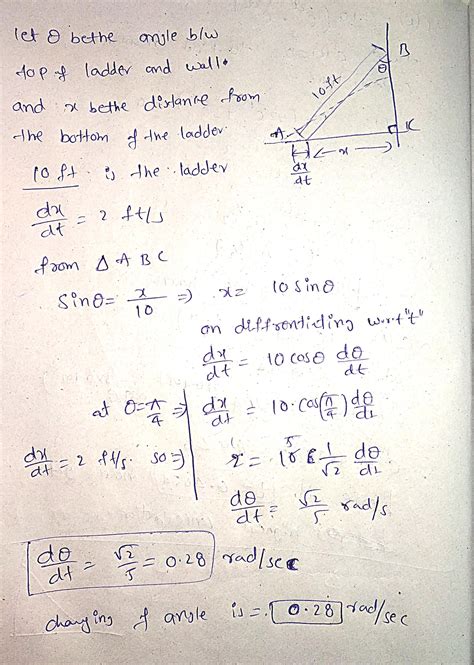 let θ bethe angle b/w
top of ladder and wall.
and x bethe distance from
the bottom of the ladder.
10 ft. is the ladder
dx/dt = 2 ft/s
from △ABC
Sinθ = x/10 ⇒ x = 10 Sinθ
on diffrentiating w.r.t "t"
dx/dt = 10 cosθ dθ/dt
at θ=π/4 ⇒ dx/dt = 10·cos(π/4) dθ/dt
dx/dt = 2 ft/s. so ⇒ 2 = 10 × 1/√2 dθ/dt
dθ/dt = √2/5 rad/s
dθ/dt = √2/5 = 0.28 rad/sec
changing of angle is = 0.28 rad/sec
B
θ
10ft
A
C
x
dx/dt